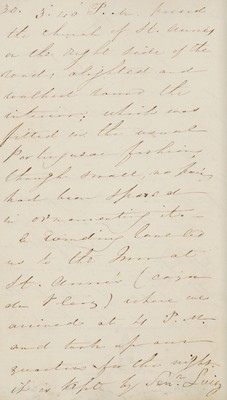 30. 3. 40' P. M. passed
the church of St. Annes
on the right side of the
road; alighted and
walked round the
interior; which was
fitted in the usual
Portuguese fashion
though small, no pains
had been spared
in ornamenting it.
A winding lane led
us to the Inn at
St. Anne's (
) where we
arrived at 4 P. M.
and took up our
quarters for the night.
it is kept by Senr. Luiz